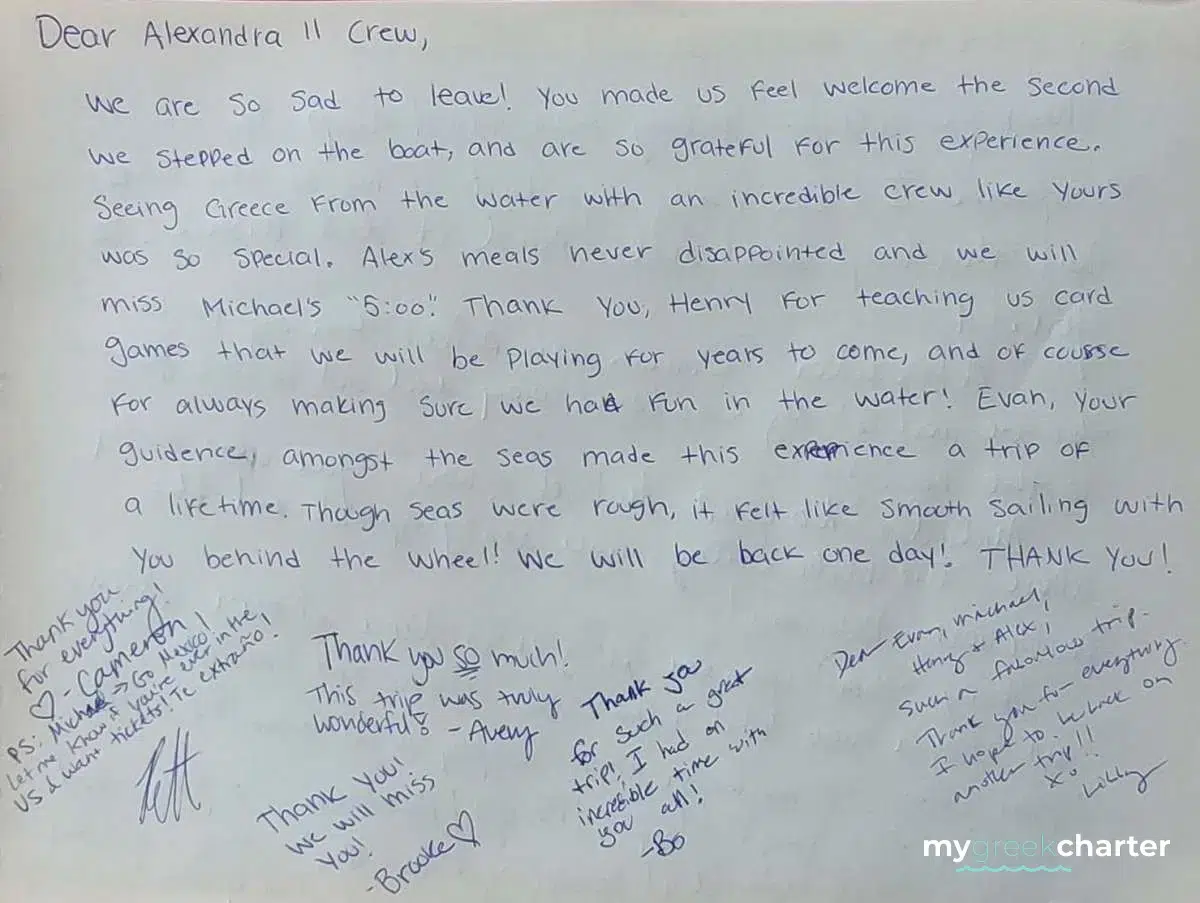 Dear Alexandra II Crew,
We are so sad to leave! You made us feel welcome the second
we stepped on the boat, and are so grateful for this experience.
Seeing Greece from the water with an incredible crew like yours
was so special. Alex's meals never disappointed and we will
miss Michael's "5:00". Thank you, Henry for teaching us card
games that we will be playing for years to come, and of course
for always making sure we had fun in the water! Evan, your
guidence, amongst the seas made this experience a trip of
a lifetime. Though seas were rough, it felt like smooth sailing with
you behind the wheel! We will be back one day! THANK YOU!
Thank you
for everything!
♡ - Cameron!
PS: Michael -> Go Mexico!
Let me know if you're ever in the
US & want tickets! Te extraño!
Thank you so much!
This trip was truly
wonderful! - Avery
Thank you!
We will miss
you!
- Brooke ♡
Thank you
for such a great
trip! I had an
incredible time with
you all!
- Bo
Dear Evan, Michael,
Henry & Alex,
Such a fabulous trip.
Thank you for everything.
I hope to be back on
another trip!!
Xo
Libby
mygreekcharter